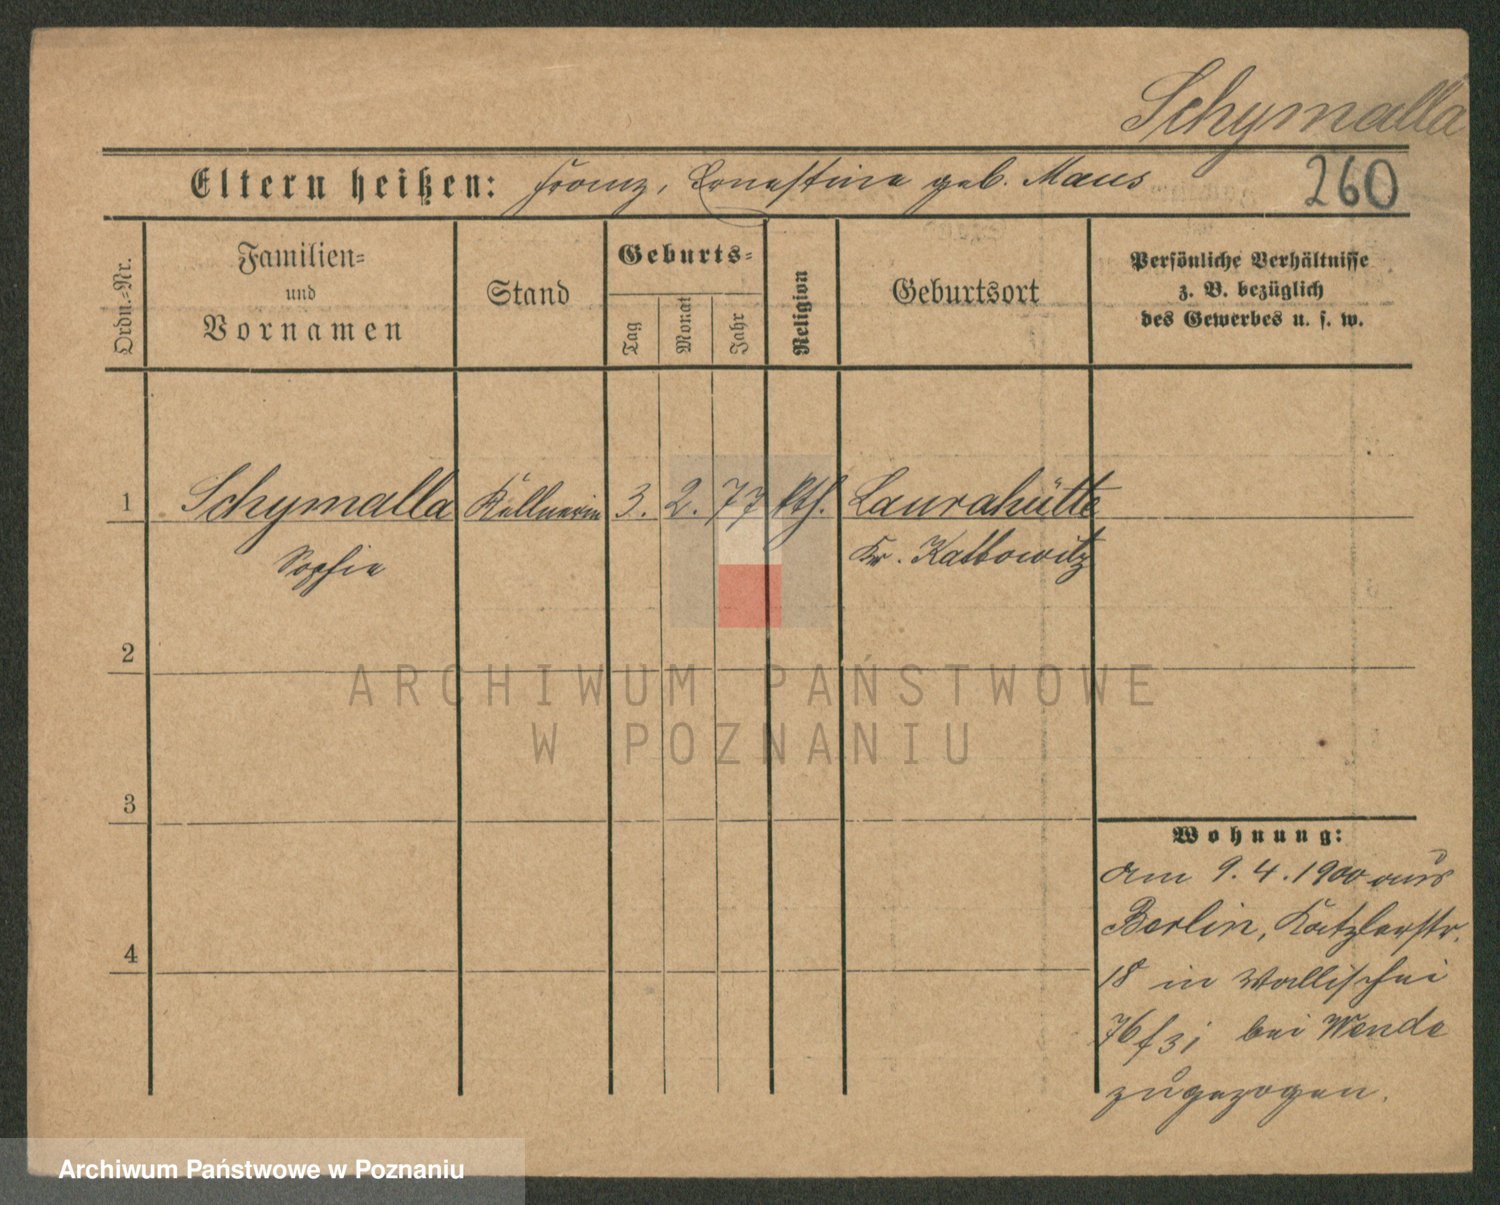 Schymalla
Eltern heißen: Franz, Ernestine geb. Maus 260
Ordn.-Nr.
Familien-
und
Vornamen
Stand
Geburts-
Tag
Monat
Jahr
Religion
Geburtsort
Persönliche Verhältnisse
z. B. bezüglich
des Gewerbes u. s. w.
1 Schymalla Kellnerin 3. 2. 77 kth. Laurahütte
Sophie Kr. Kattowitz
2
ARCHIWUM PAŃSTWOWE
W POZNANIU
3
Wohnung:
am 9.4.1900 aus
Berlin, Katzlerstr.
4
18 in Wallischei
76/3; bei Wende
zugezogen.
Archiwum Państwowe w Poznaniu